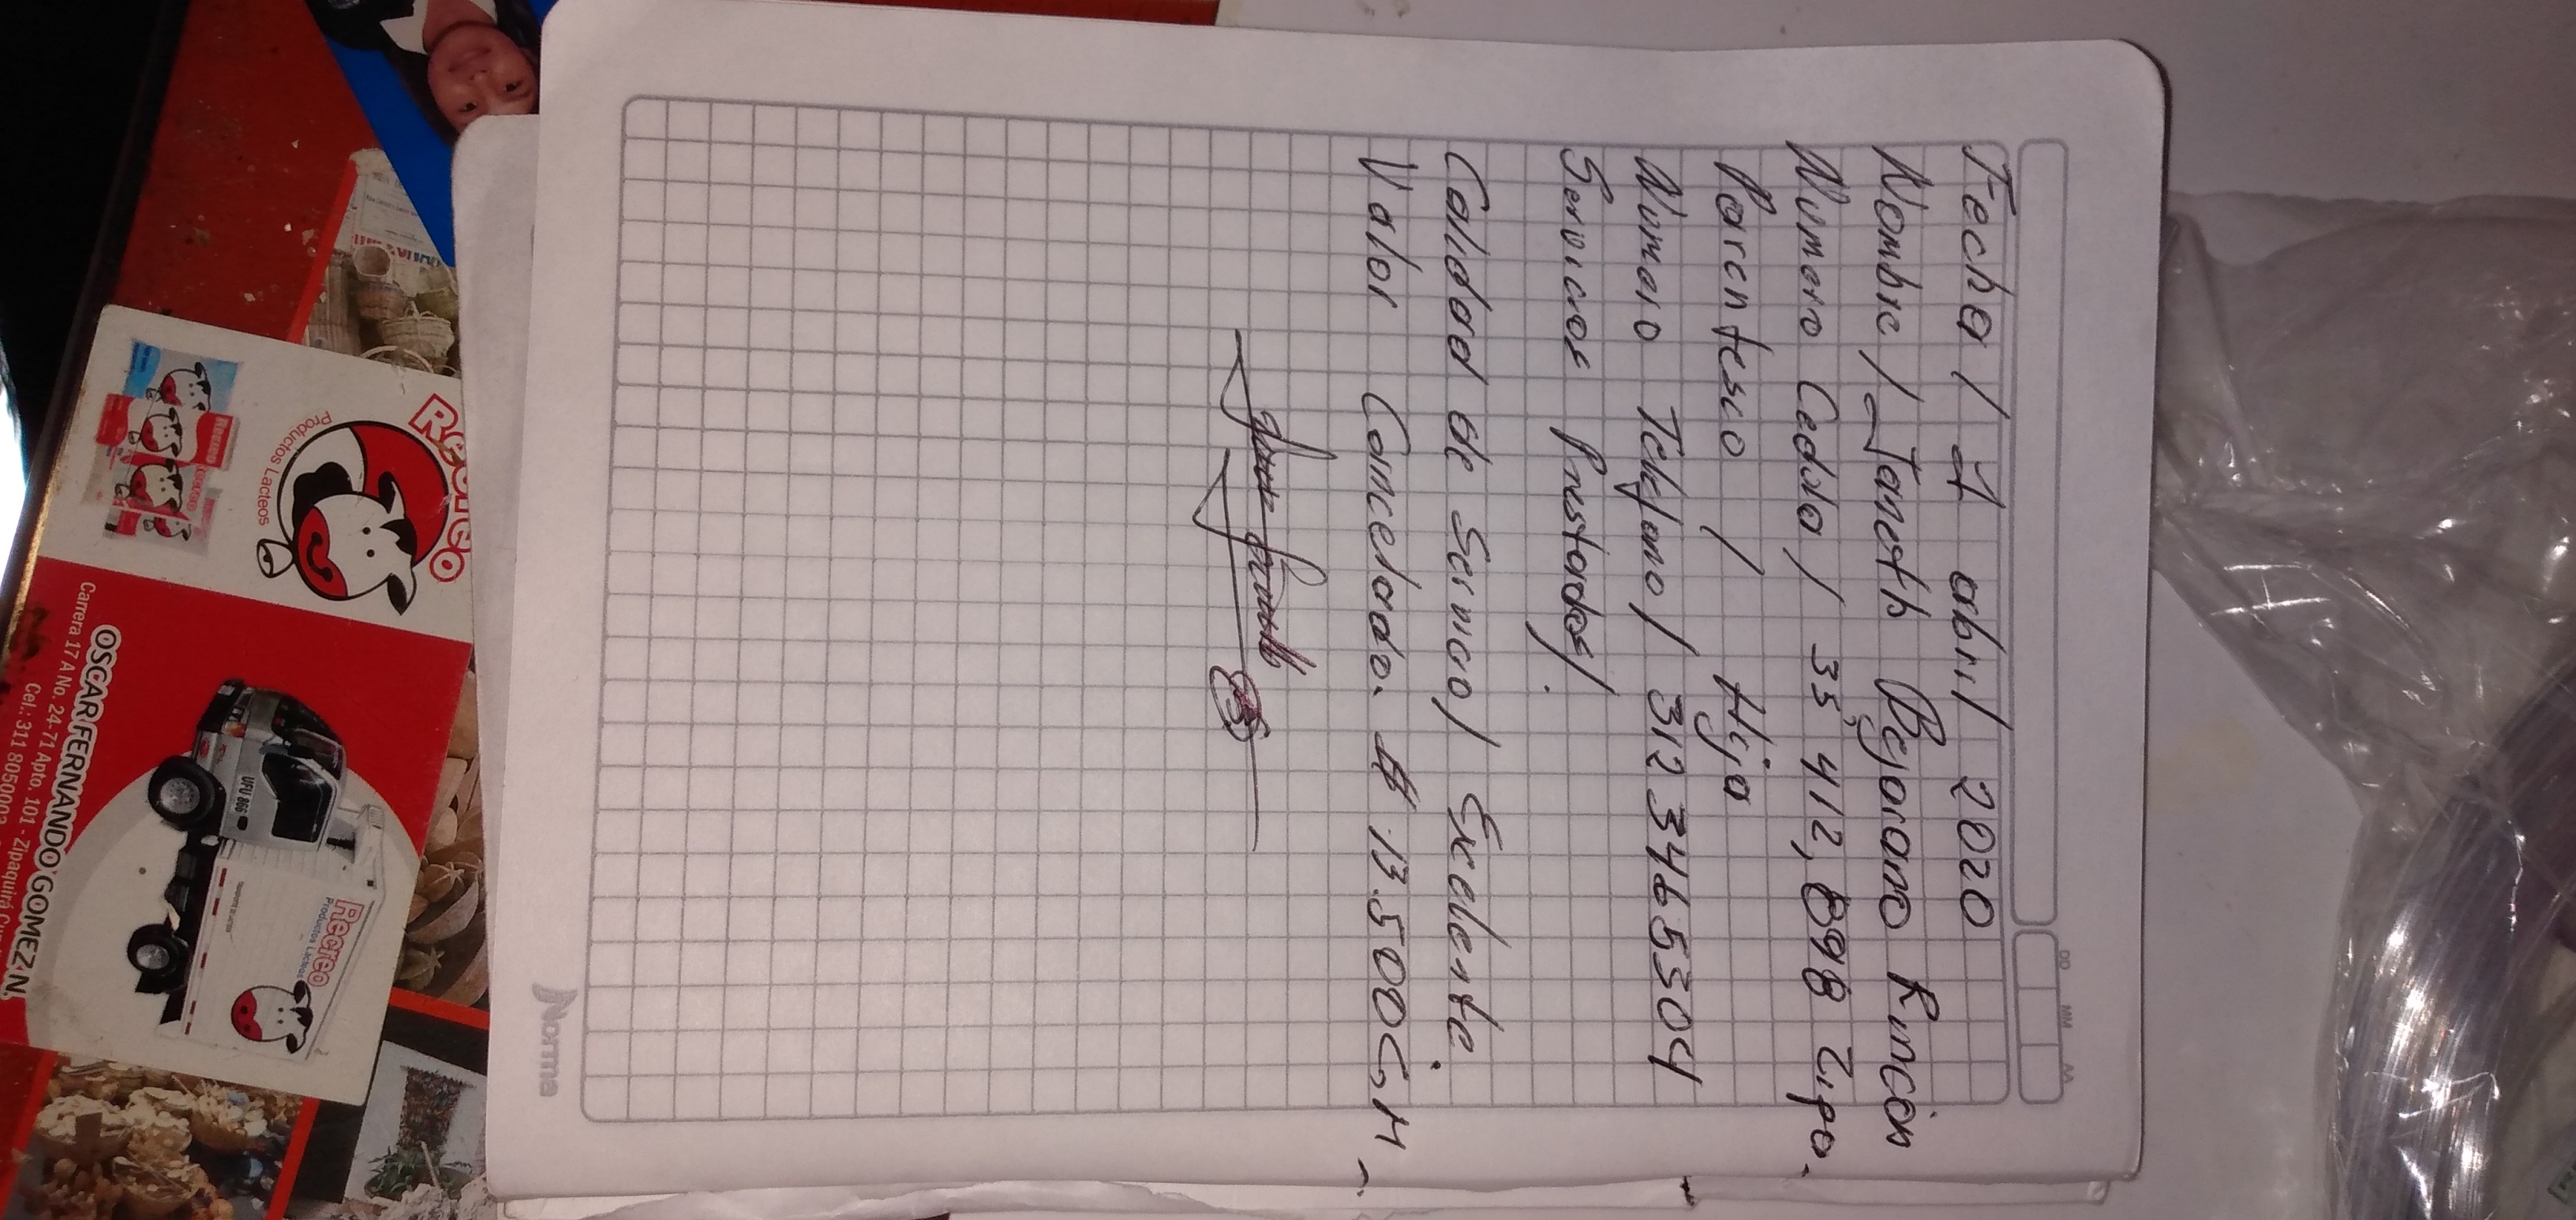 Fecha / 7 abril 2020
Nombre / Janeth Bejarano Rincón
Numero Cedda / 35,412,898 Zipa.
Parentesco / Hija
Numero Telefono / 312 3465304
Servicos Prestados/.
Calidad de Servico/ Exelente.
Valor Cancelado. $ 13.500
DD MM AA
Norma
Recreo
Productos Lacteos
OSCAR FERNANDO GOMEZ N.
Carrera 17 A No. 24-71 Apto. 101 - Zipaquirá
Cel.: 311 8050003
UFU 866
Recreo
Productos Lácteos